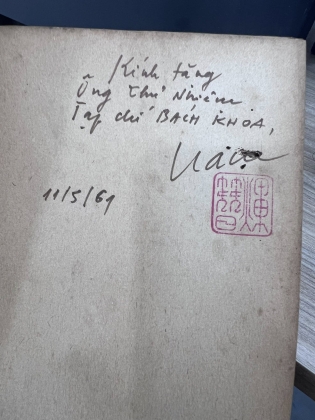 Kính tặng
Ông Chủ Nhiệm
Tạp chí BÁCH KHOA,
11/5/61